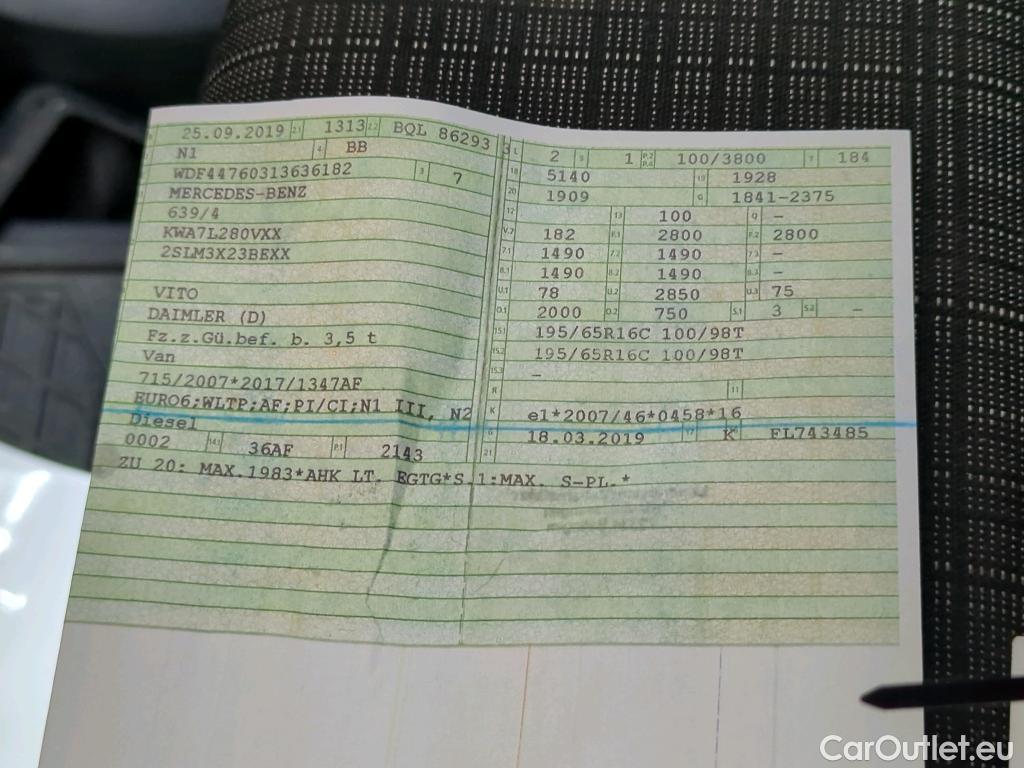 25.09.2019 2.1 1313 2.2 BQL 86293 3
N1 4 BB
WDF44760313636182 3 7
MERCEDES-BENZ
639/4
KWA7L280VXX
2SLM3X23BEXX
VITO
DAIMLER (D)
Fz.z.Gü.bef. b. 3,5 t
Van
715/2007*2017/1347AF
EURO6;WLTP;AF;PI/CI;N1 III, N2
Diesel
0002 14.1 36AF P.1 2143
L 2 9 1 P.2 P.4 100/3800 T 184
18 5140 19 1928
20 1909 G 1841-2375
12 13 100 Q -
V.7 182 F.1 2800 F.2 2800
7.1 1490 7.2 1490 7.3 -
8.1 1490 8.2 1490 8.3 -
U.1 78 U.2 2850 U.3 75
O.1 2000 O.2 750 S.1 3 S.2 -
15.1 195/65R16C 100/98T
15.2 195/65R16C 100/98T
15.3 -
R 11
K e1*2007/46*0458*16
6 18.03.2019 17 K 16 FL743485
21
ZU 20: MAX.1983*AHK LT. EGTG*S.1:MAX. S-PL.*
CarOutlet.eu